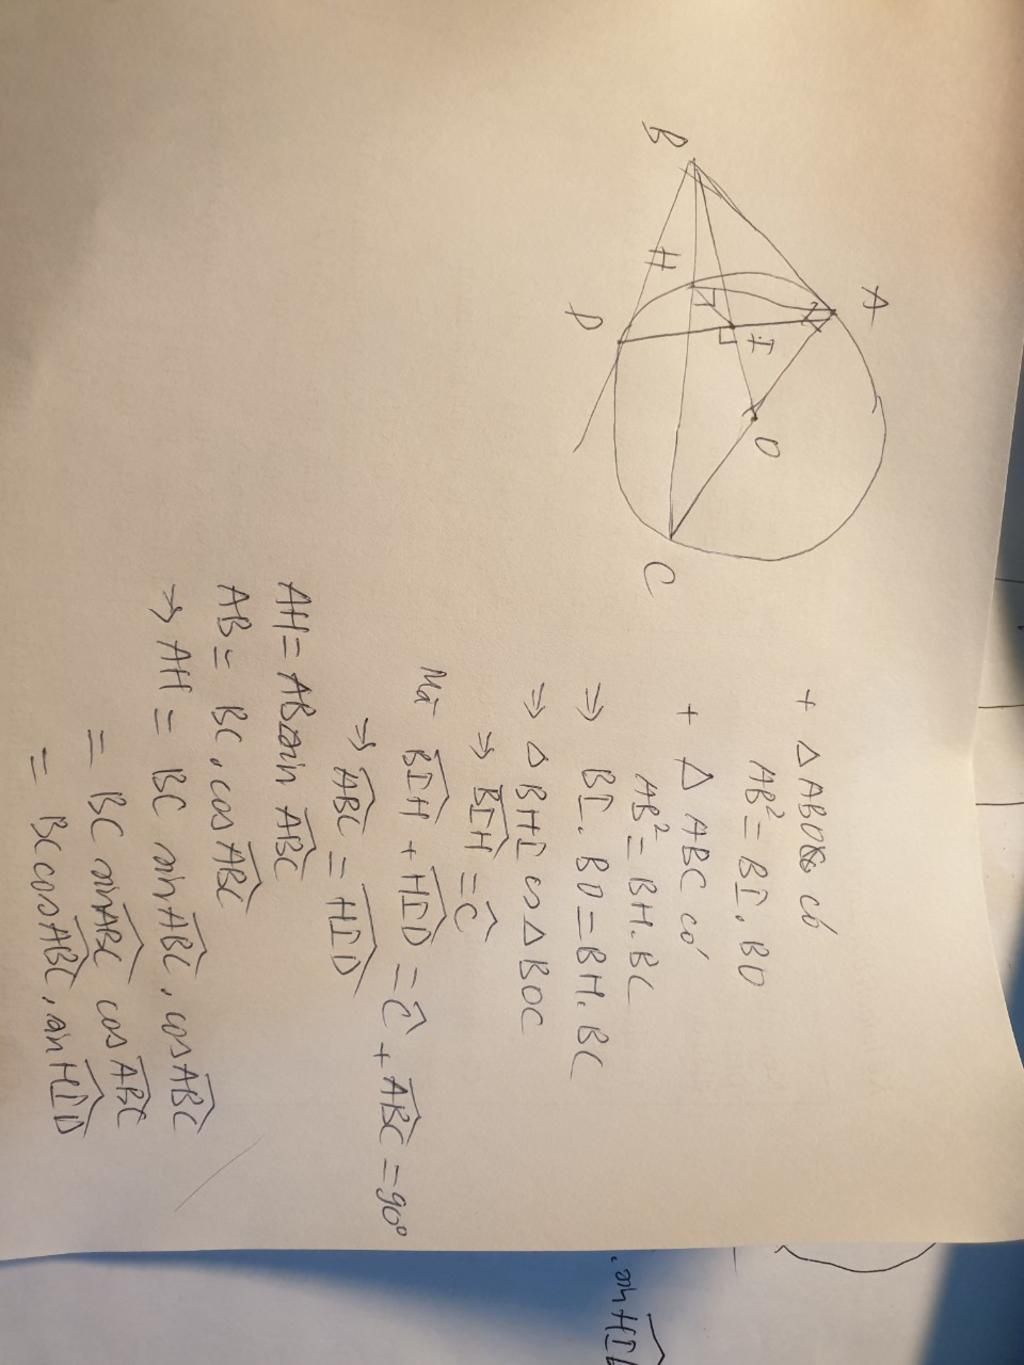 B
A
H
D
I
O
C
+ △ABO có
AB² = BI. BO
+ △ ABC có
AB² = BH. BC
⇒ BI. BO = BH. BC
⇒ △BHI ∽ △BOC
⇒ \widehat{BIH} = \widehat{C}
Mà \widehat{BIH} + \widehat{HID} = \widehat{C} + \widehat{ABC} = 90°
⇒ \widehat{ABC} = \widehat{HID}
AH = AB sin \widehat{ABC}
AB = BC. cos \widehat{ABC}
⇒ AH = BC sin \widehat{ABC}. cos \widehat{ABC}
= BC sin \widehat{ABC} cos \widehat{ABC}
= BC cos \widehat{ABC}. sin \widehat{HID}
. sin HI